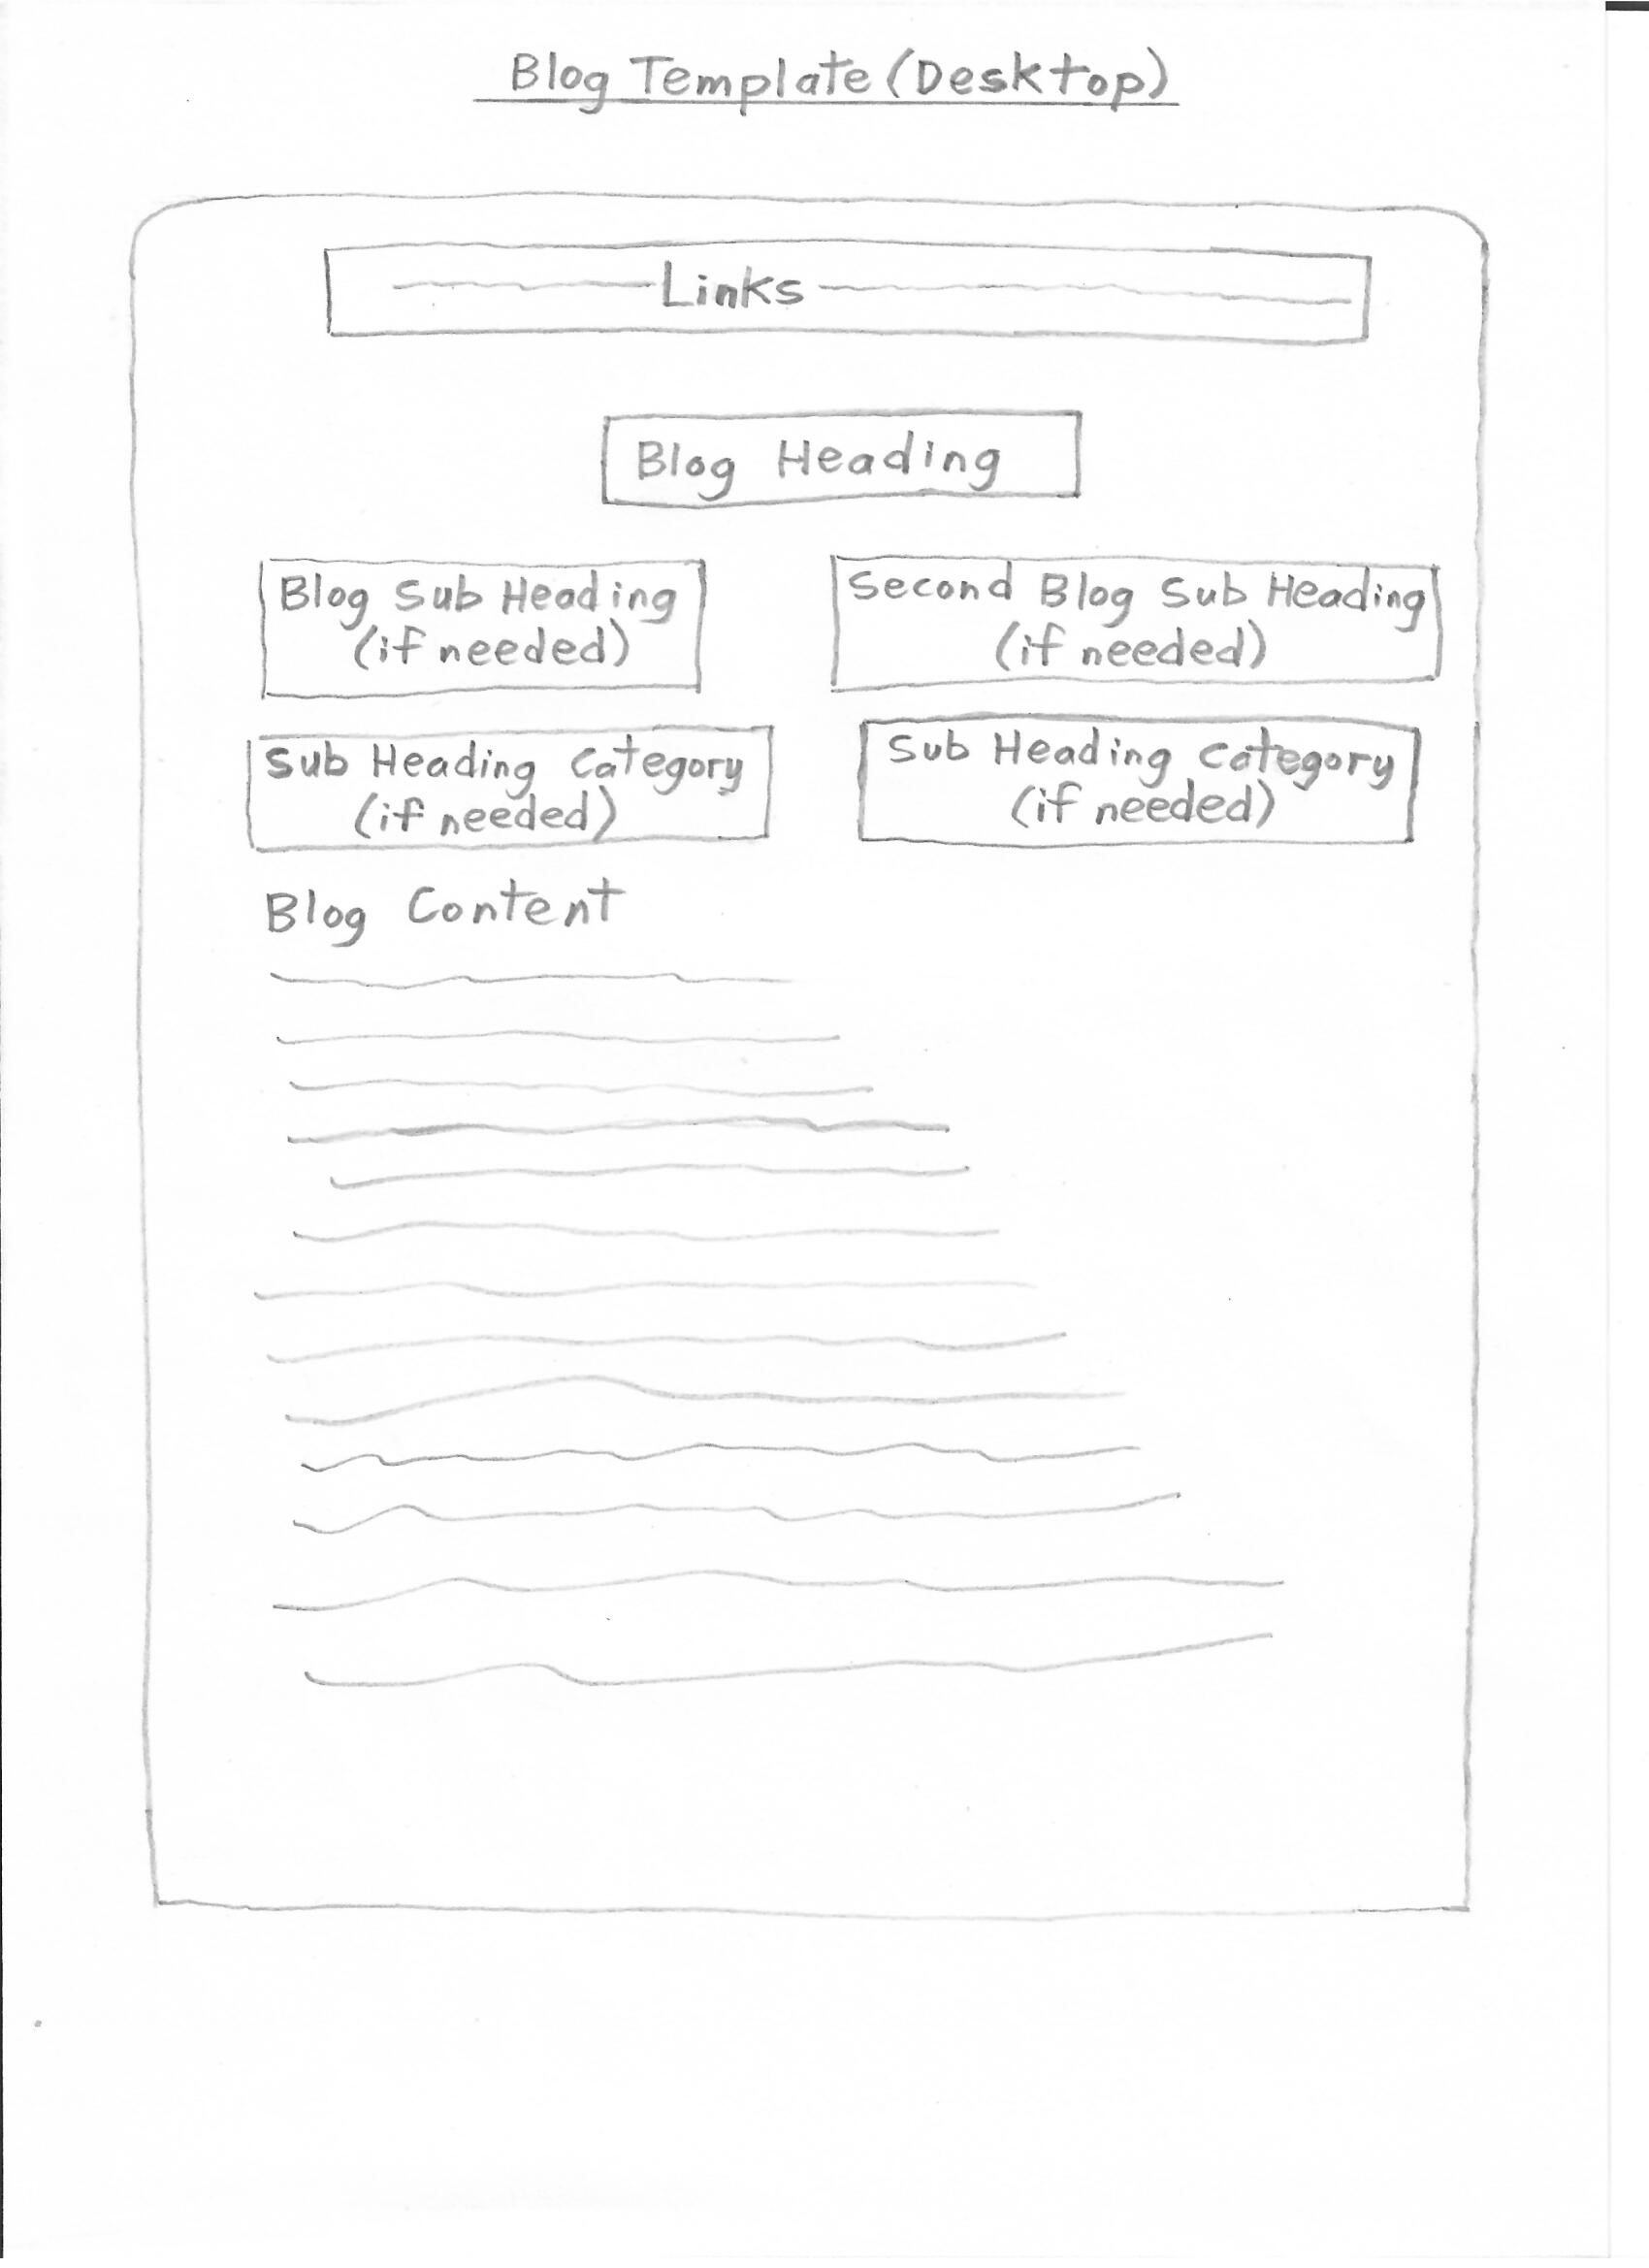 Blog Template (Desktop)
Links
Blog Heading
Blog Sub Heading
(if needed)
Second Blog Sub Heading
(if needed)
Sub Heading Category
(if needed)
Sub Heading Category
(if needed)
Blog Content